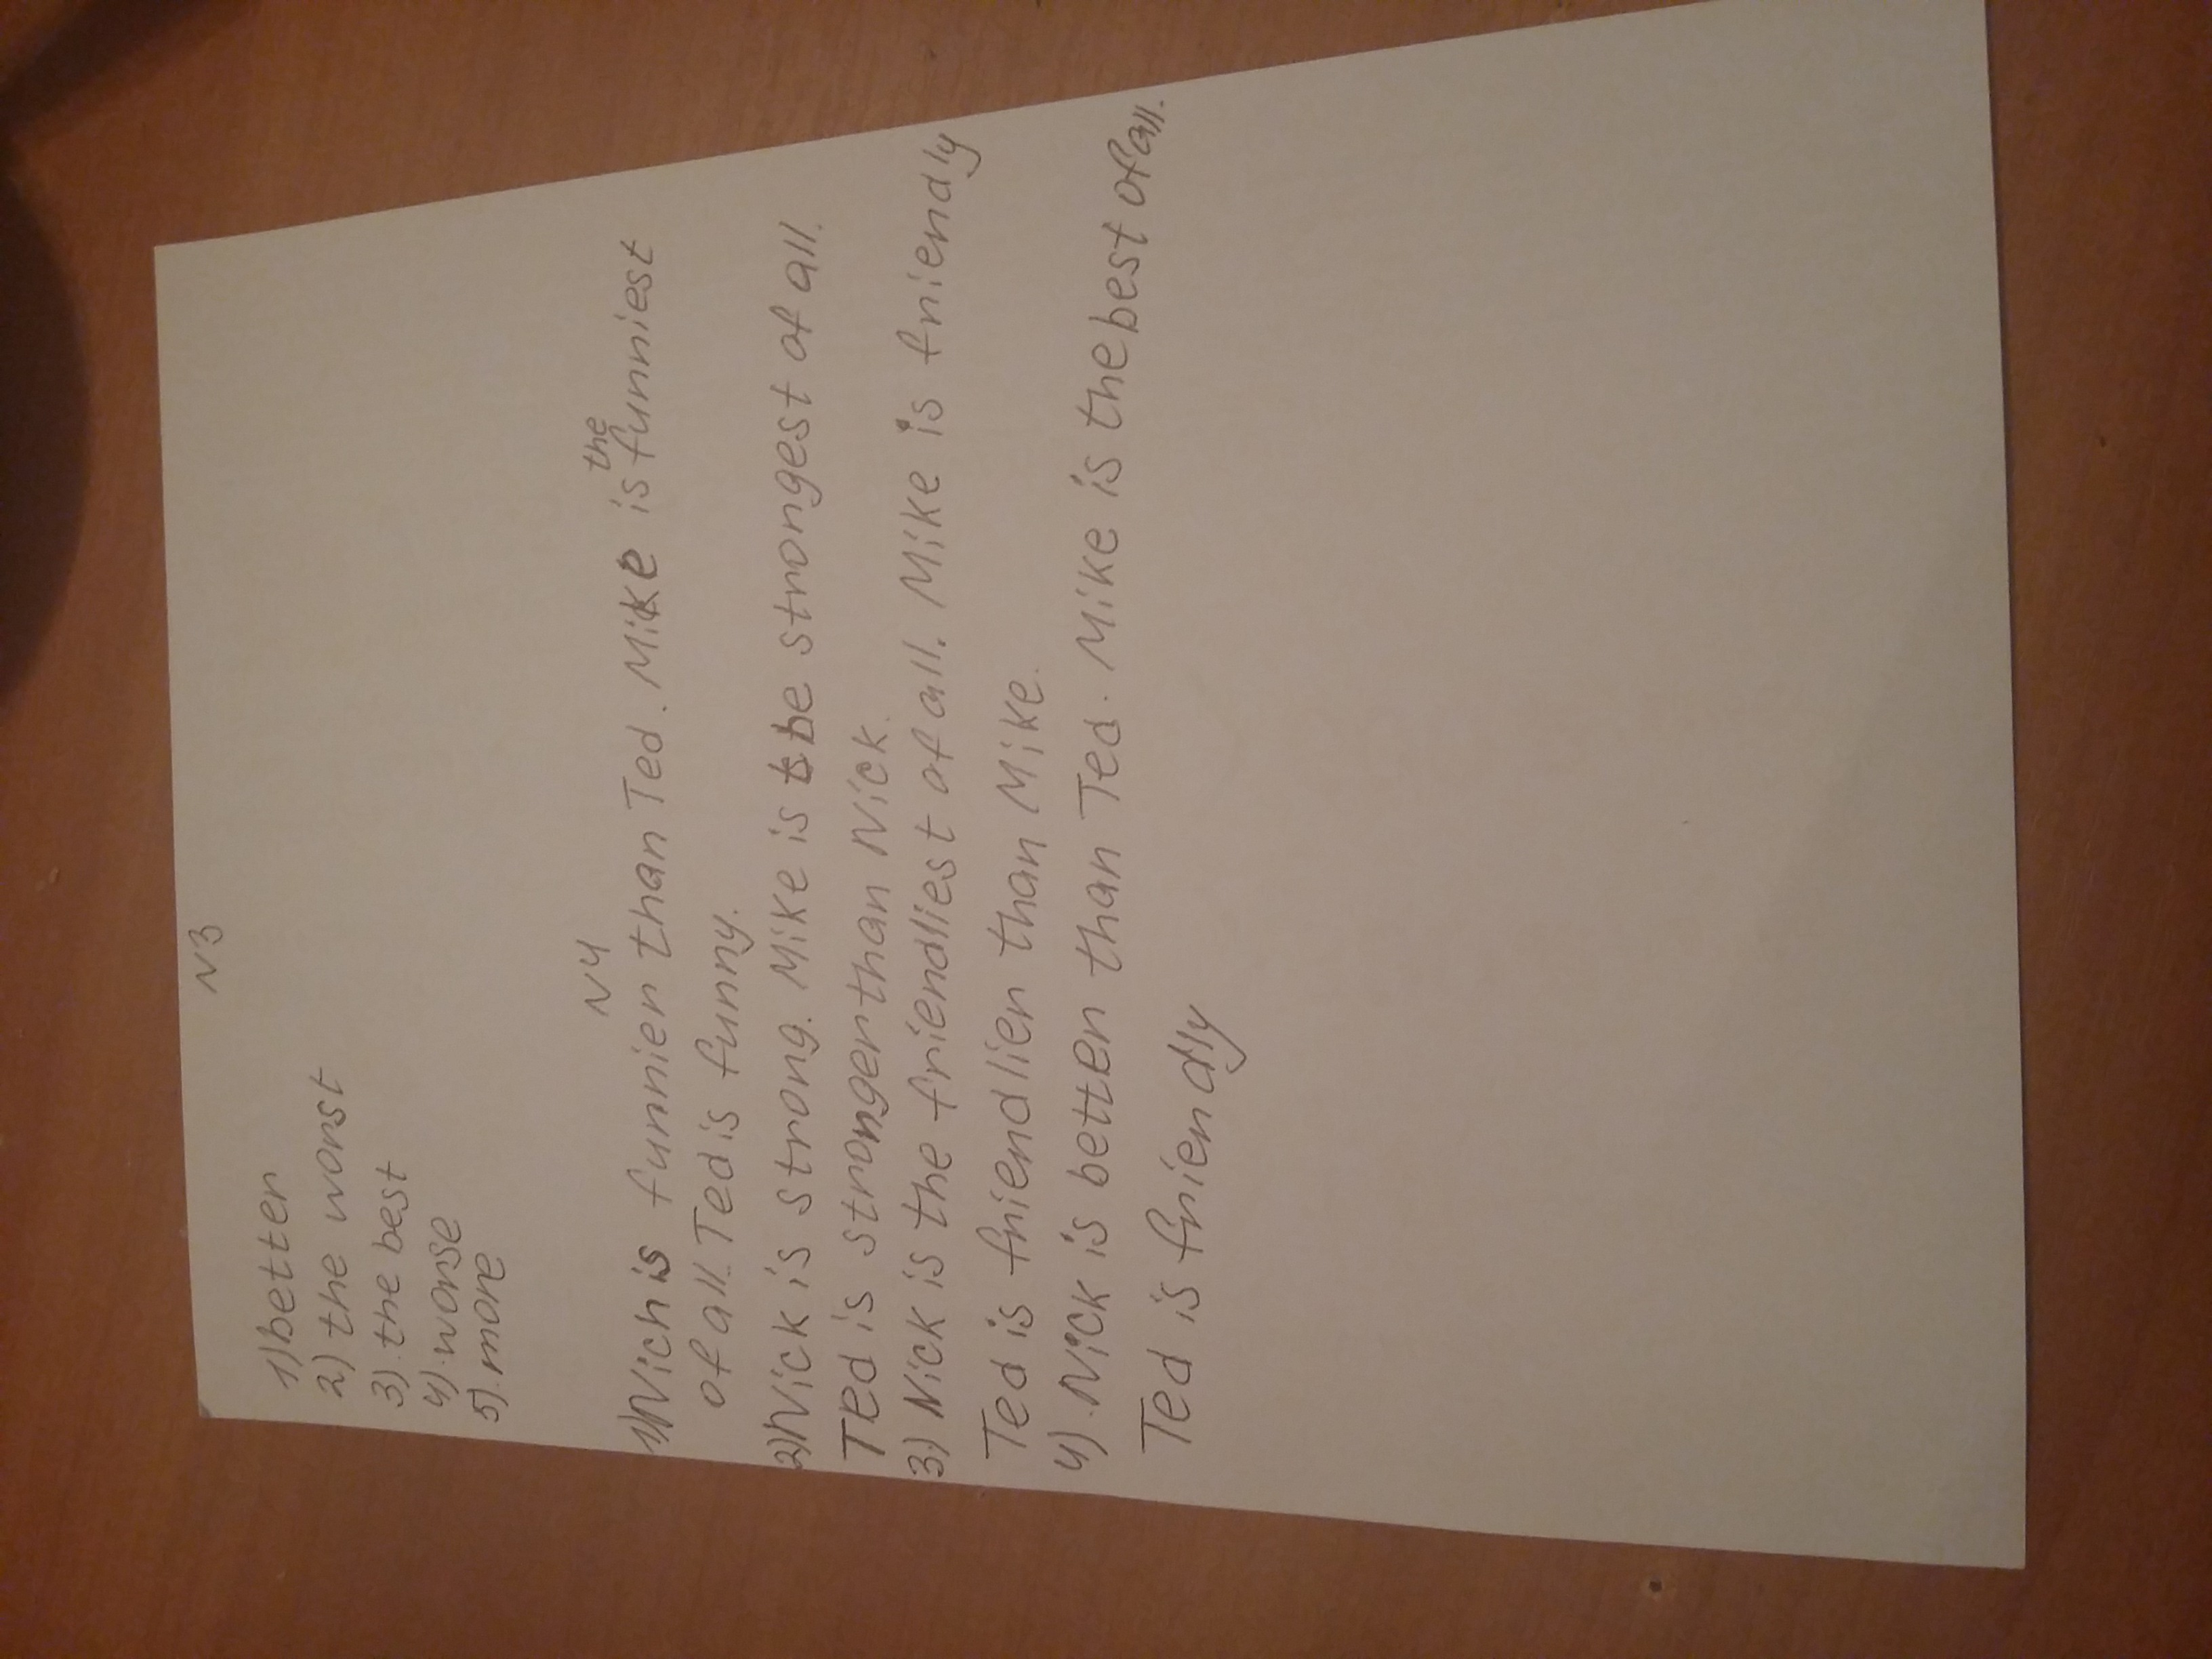 N3
1) better
2) the worst
3) the best
4) worse
5) more
N4
1) Nich is funnier than Ted. Mike is the funniest
of all. Ted is funny.
2) Nick is strong. Mike is the strongest of all.
Ted is stronger than Nick.
3) Nick is the friendliest of all. Mike is friendly
Ted is friendlier than Mike.
4) Nick is better than Ted. Mike is the best of all.
Ted is friendly